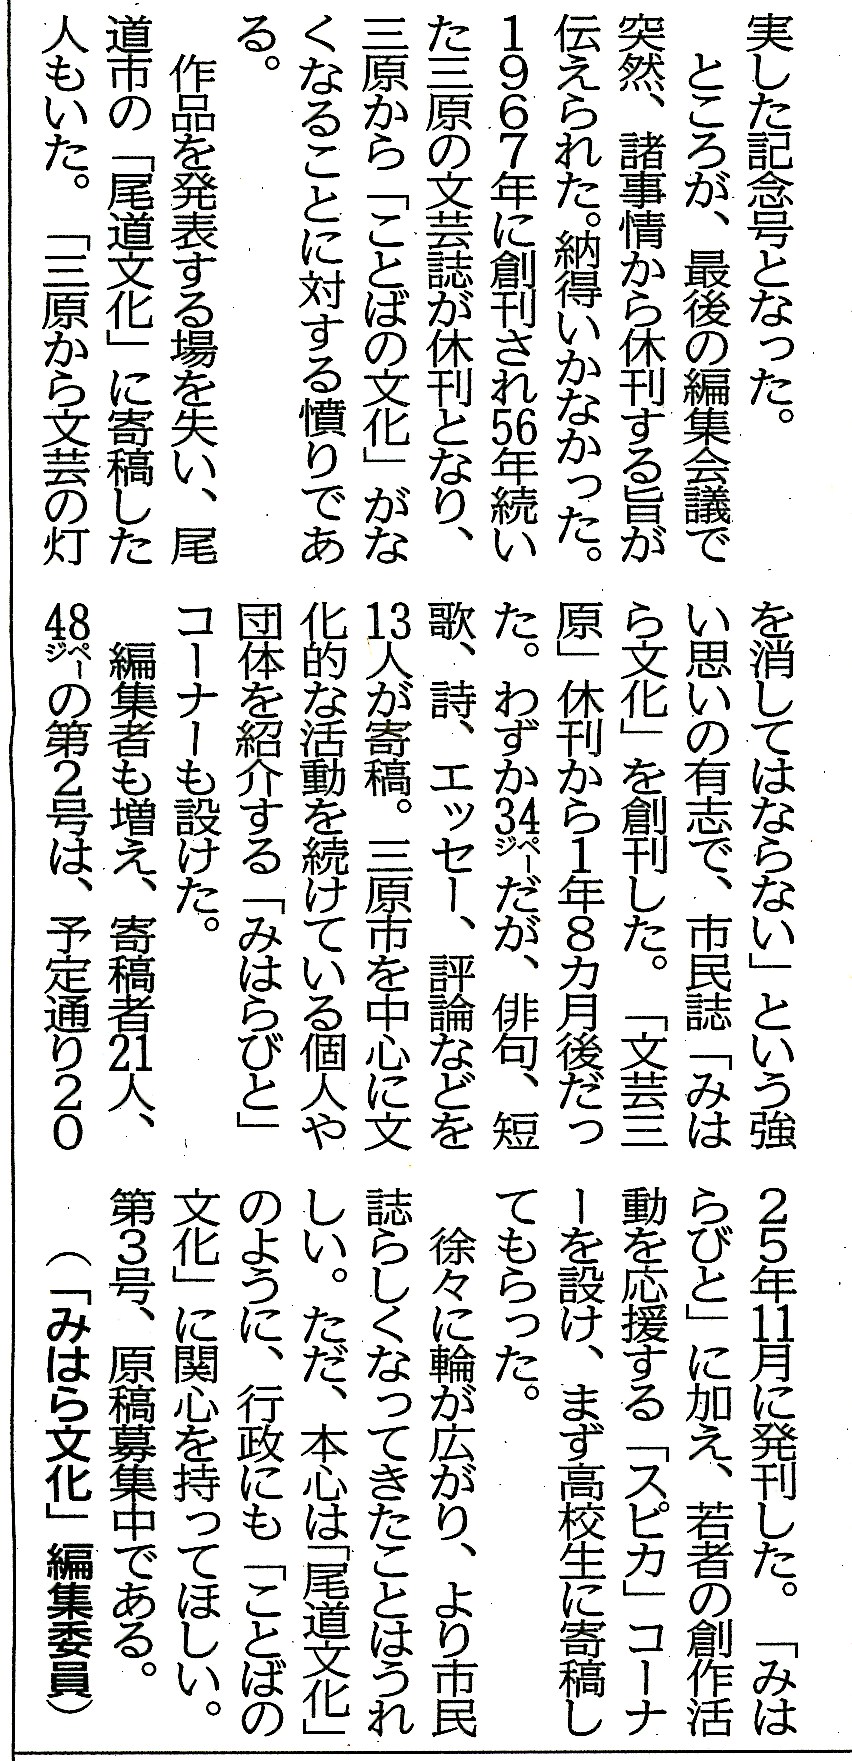 実した記念号となった。
　ところが、最後の編集会議で
突然、諸事情から休刊する旨が
伝えられた。納得いかなかった。
１９６７年に創刊され56年続い
た三原の文芸誌が休刊となり、
三原から「ことばの文化」がな
くなることに対する憤りであ
る。
　作品を発表する場を失い、尾
道市の「尾道文化」に寄稿した
人もいた。「三原から文芸の灯
を消してはならない」という強
い思いの有志で、市民誌「みは
ら文化」を創刊した。「文芸三
原」休刊から１年８カ月後だっ
た。わずか34㌻だが、俳句、短
歌、詩、エッセー、評論などを
13人が寄稿。三原市を中心に文
化的な活動を続けている個人や
団体を紹介する「みはらびと」
コーナーも設けた。
　編集者も増え、寄稿者21人、
48㌻の第２号は、予定通り２０
２５年11月に発刊した。「みは
らびと」に加え、若者の創作活
動を応援する「スピカ」コーナ
ーを設け、まず高校生に寄稿し
てもらった。
　徐々に輪が広がり、より市民
誌らしくなってきたことはうれ
しい。ただ、本心は「尾道文化」
のように、行政にも「ことばの
文化」に関心を持ってほしい。
第３号、原稿募集中である。
（「みはら文化」編集委員）